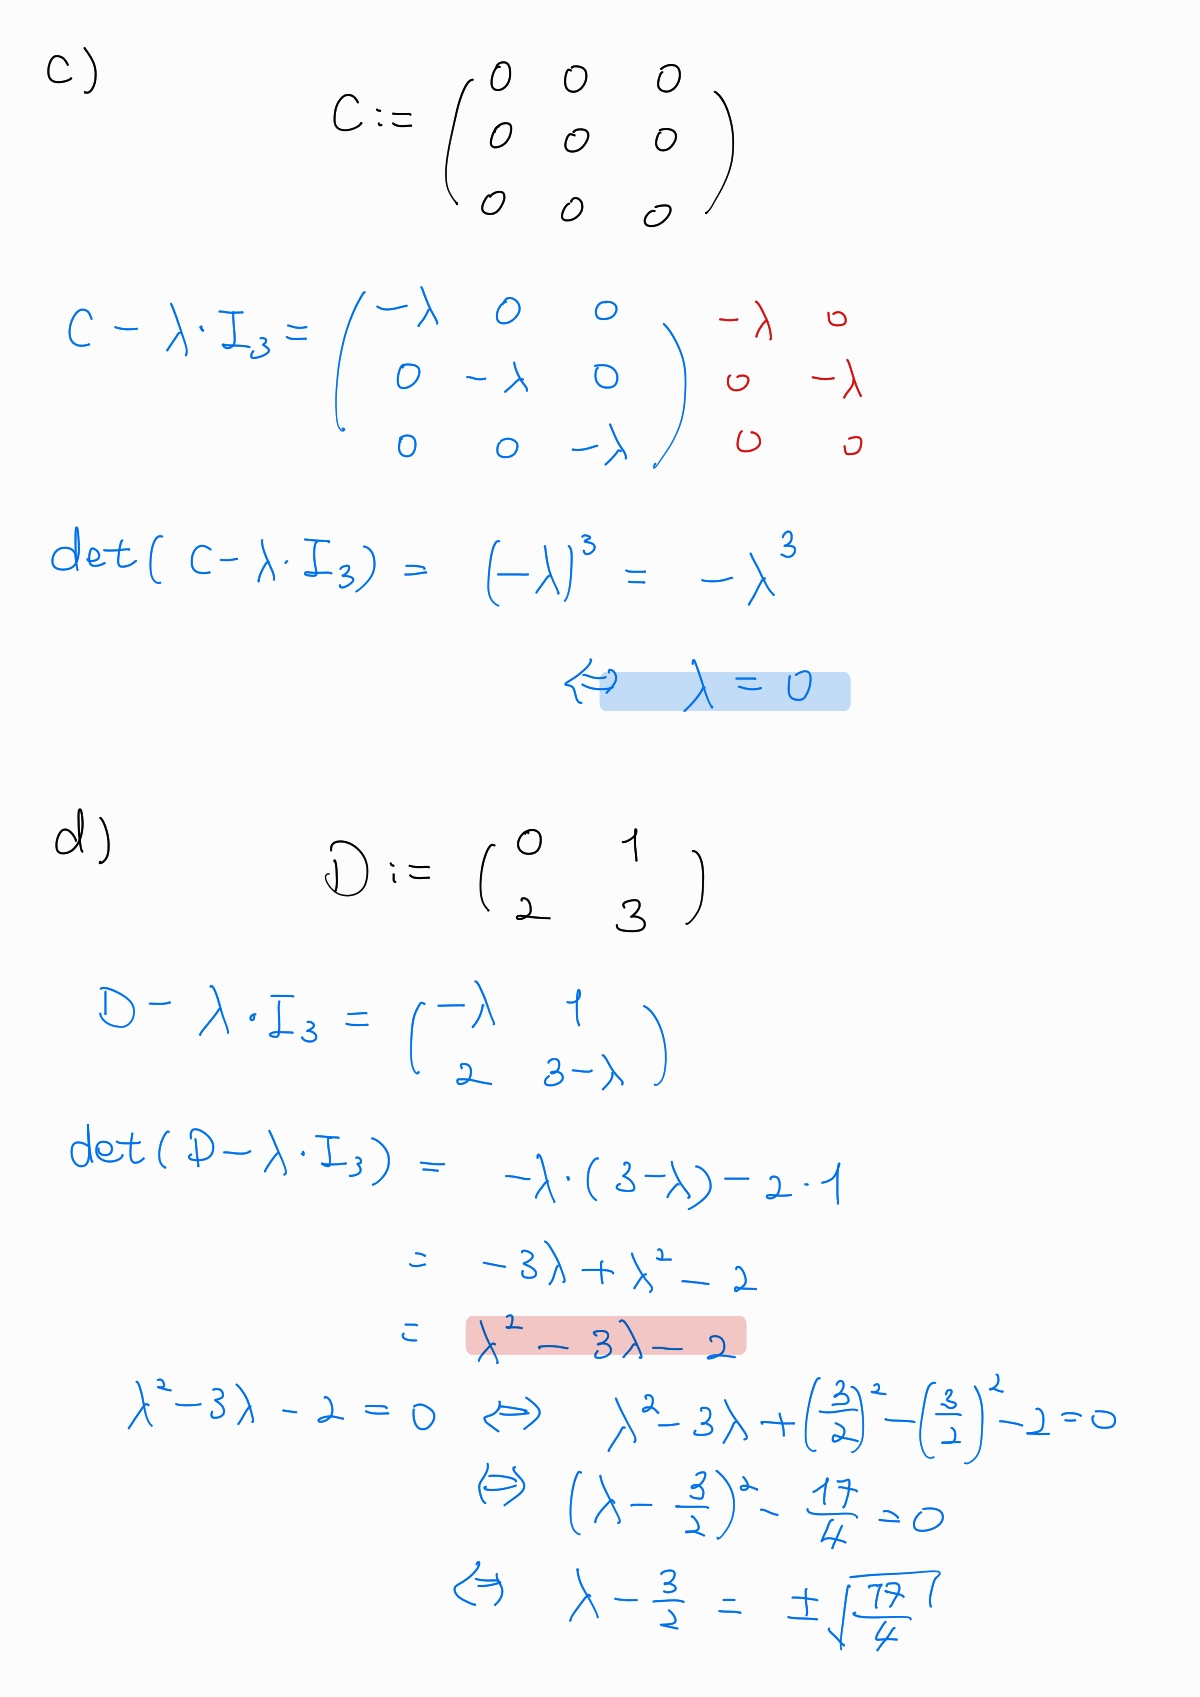 c)
C := ( 0 0 0
0 0 0
0 0 0 )
C - λ · I₃ = ( -λ 0 0
0 -λ 0
0 0 -λ ) -λ 0
0 -λ
0 0
det( C - λ · I₃ ) = (-λ)³ = -λ³
⇔ λ = 0
d)
D := ( 0 1
2 3 )
D - λ · I₃ = ( -λ 1
2 3-λ )
det( D - λ · I₃ ) = -λ · ( 3-λ ) - 2 · 1
= -3λ + λ² - 2
= λ² - 3λ - 2
λ² - 3λ - 2 = 0 ⇔ λ² - 3λ + (3/2)² - (3/2)² - 2 = 0
⇔ (λ - 3/2)² - 17/4 = 0
⇔ λ - 3/2 = ± √(17/4)